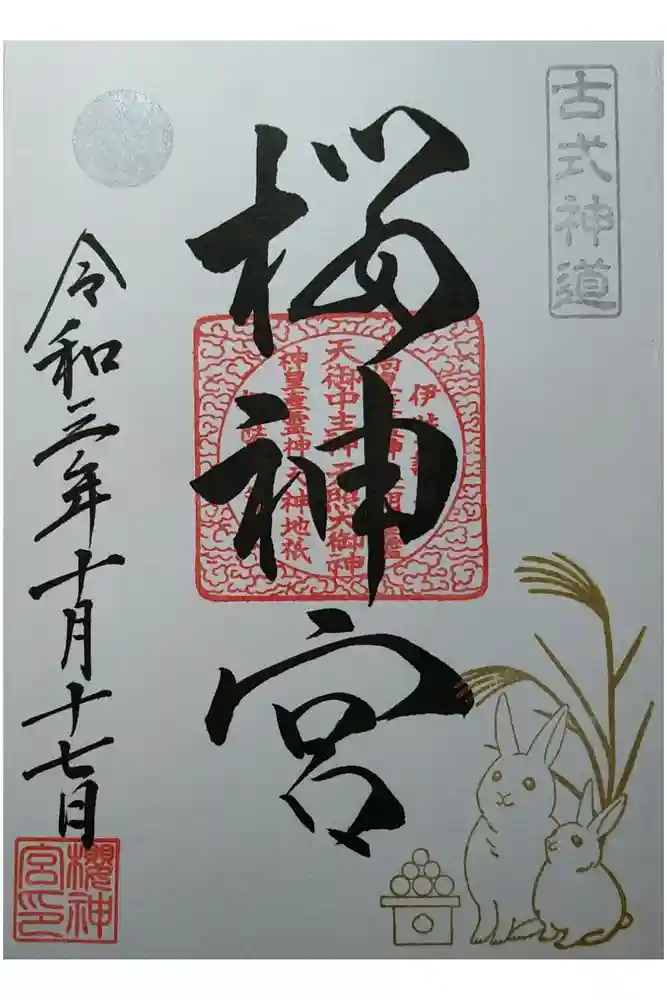 古式神道
桜神宮
天御中主神天照大御神
神皇産霊神天神地祇
令和三年十月十七日
櫻神
宮印